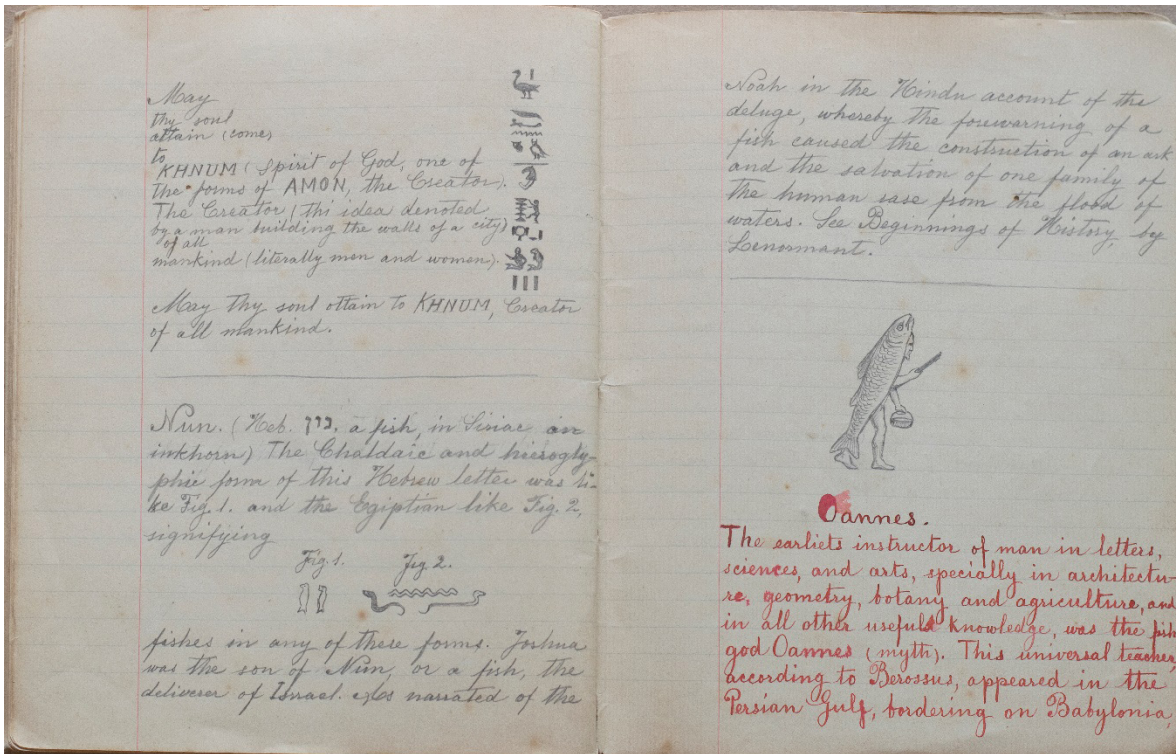 May
thy soul
attain (come)
to
KHNUM (Spirit of God, one of
the forms of AMON, the Creator).
The Creator (thi idea denoted
by a man building the walls of a city)
of all
mankind (literally men and women).
May thy soul attain to KHNUM, Creator
of all mankind.
Nun. (Heb. נון, a fish, in Siriac an
inkhorn) The Chaldaic and hierogly-
phic form of this Hebrew letter was li-
ke Fig. 1. and the Egiptian like Fig. 2,
signifying
Fig. 1. Fig 2.
fishes in any of these forms. Joshua
was the son of Nun, or a fish, the
deliverer of Israel. As narrated of the
Noah in the Hindu account of the
deluge, whereby the fouwarning of a
fish caused the construction of an ark
and the salvation of one family of
the human rase from the flood of
waters. See Beginnings of History, by
Lenormant.
Oannes.
The earliets instructor of man in letters,
sciences, and arts, specially in architectu-
re, geometry, botany and agriculture, and
in all other useful knowledge, was the fish
god Oannes (myth). This universal teacher,
according to Berossus, appeared in the
Persian Gulf, bordering on Babylonia,